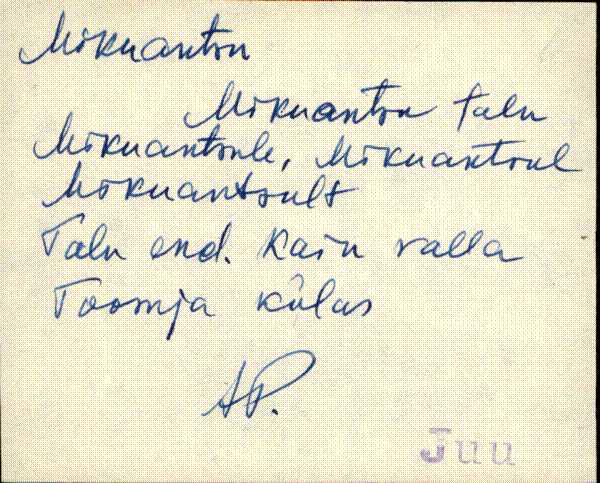 Mikuantsu
Mikuantsu talu
Mikuantsule, Mikuantsul
Mikuantsult
Talu end. Kaiu valla
Toomja külas
AP.
Juu